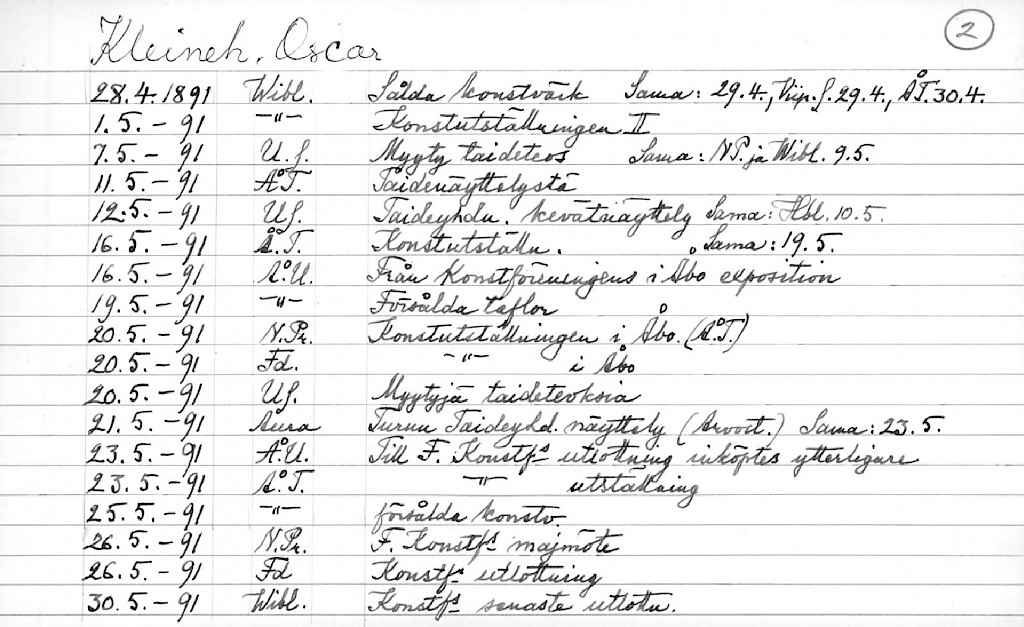 Kleineh, Oscar 2
28.4.1891 Wibl. Sålda konstvärk Sama: 29.4., Viip.S. 29.4., Å.T. 30.4.
1.5.-91 -"- Konstutställningen II
7.5.-91 U.S. Myyty taideteos Sama: N.P. ja Wibl. 9.5.
11.5.-91 Å.T. Taidenäyttelystä
12.5.-91 U.S. Taideyhdn. kevätnäyttely Sama: Hbl. 10.5.
16.5.-91 Å.T. Konstutställn. Sama: 19.5.
16.5.-91 Å.U. Från Konstföreningens i Åbo exposition
19.5.-91 -"- Försålda taflor
20.5.-91 N.Pr. Konstutställningen i Åbo. (Å.T.)
20.5.-91 Fd. -"- i Åbo
20.5.-91 U.S. Myytyjä taideteoksia
21.5.-91 Aura Turun Taideyhd. näyttely (Arvost.) Sama: 23.5.
23.5.-91 Å.U. Till F. Konstf:s utlottning inköptes ytterligare
23.5.-91 Å.T. -"- utställning
25.5.-91 -"- försålda konstv.
26.5.-91 N.Pr. F. Konstf:s majmöte
26.5.-91 Fd Konstf:s utlottning
30.5.-91 Wibl. Konstf:s senaste utlottn.